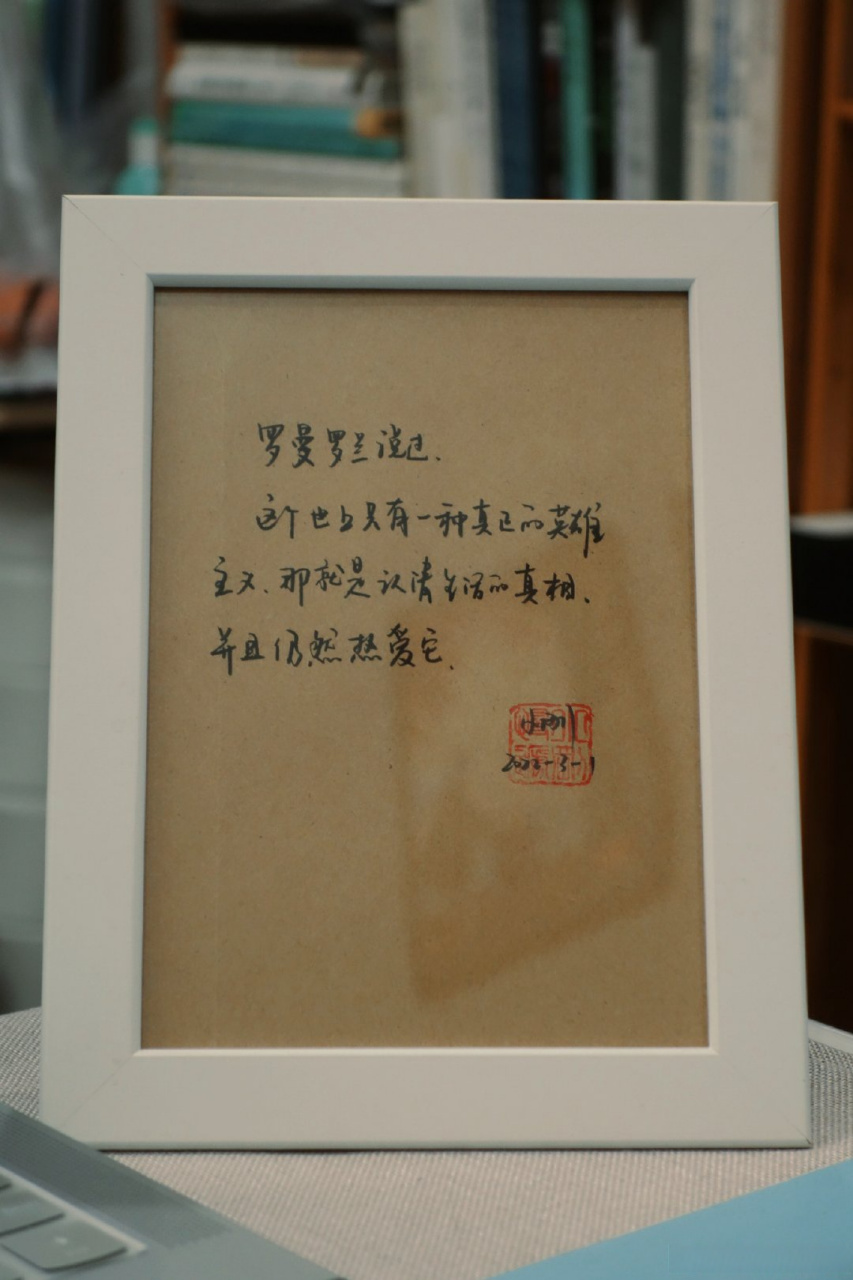 罗曼罗兰说过、
这个世上只有一种真正的英雄
主义、那就是认清生活的真相、
并且仍然热爱它.
2022-3-1